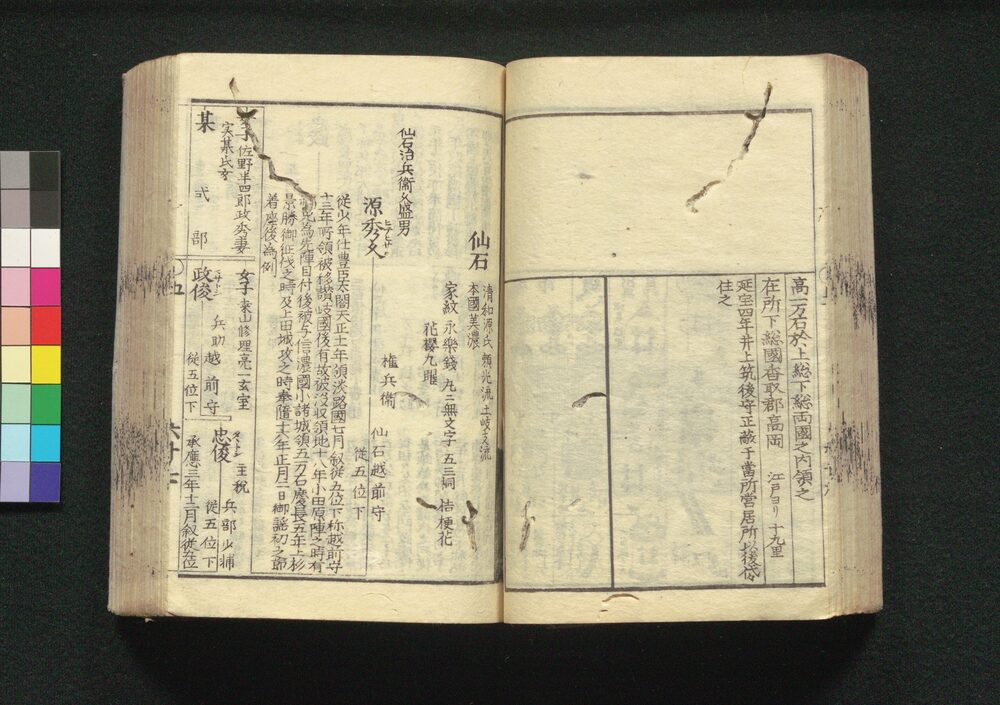 高一万石於上総下総両國之内領之
在所下総國香取郡高岡 江戸ヨリ十九里
延宝四年井上筑後守正敝于當所営居所以後代
住之
仙石
清和源氏 頼光流土岐支流
本國美濃
家紋 永樂銭 丸ニ無文字 五三桐 桔梗花
花櫻九曜
仙石治兵衛久盛男
源秀久
權兵衛 仙石越前守
従五位下
従少年仕豊臣太閤天正十一年領淡路國七月叙従五位下称越前守
十三年所領被移讃岐國後有故被没収領地十八年小田原陣之時有
為先陣目付後被与信濃國小諸城領五万石慶長五年上杉
景勝御征伐之時及上田城攻之時奉随十六年正月二日御謡初之節
着座後為例
女子 佐野半四郎政秀妻
実某氏女
某 弐部
女子 来山修理亮一玄室
政俊 兵助 越前守
従五位下
忠俊 主税 兵部少輔
従五位下
承應三年十二月叙従五位